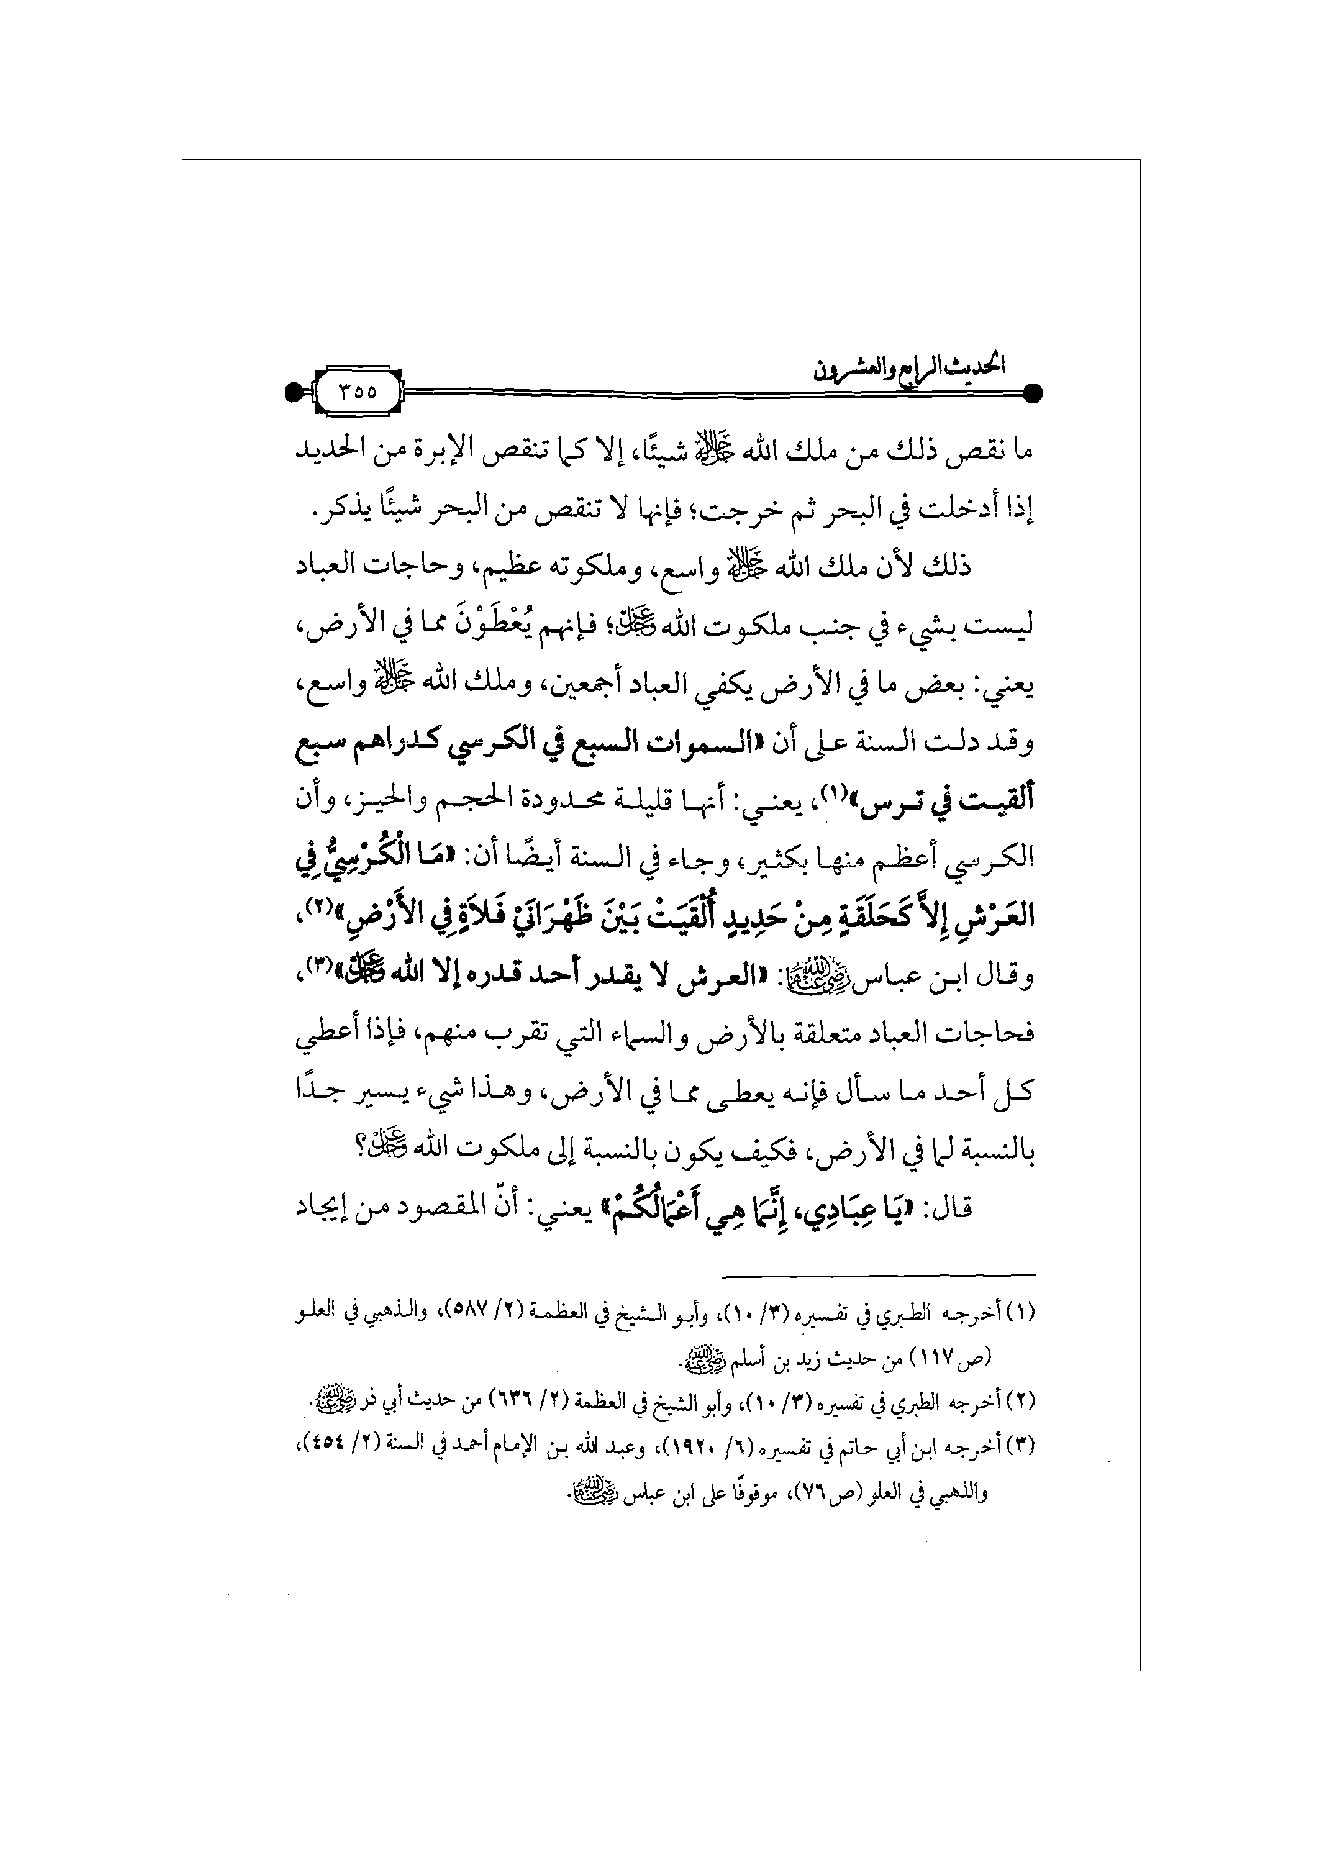 الحديث الرابع والعشرون
٣٥٥
ما نقص ذلك من ملك الله ﷻ شيئًا، إلا كما تنقص الإبرة من الحديد
إذا أدخلت في البحر ثم خرجت؛ فإنها لا تنقص من البحر شيئًا يذكر.
ذلك لأن ملك الله ﷻ واسع، وملكوته عظيم، وحاجات العباد
ليست بشيء في جنب ملكوت الله عز وجل؛ فإنهم يُعْطَوْنَ مما في الأرض،
يعني: بعض ما في الأرض يكفي العباد أجمعين، وملك الله ﷻ واسع،
وقد دلت السنة على أن «السموات السبع في الكرسي كدراهم سبع
ألقيت في ترس»(١)، يعني: أنها قليلة محدودة الحجم والحيز، وأن
الكرسي أعظم منها بكثير، وجاء في السنة أيضًا أن: «مَا الْكُرْسِيُّ فِي
العَرْشِ إِلاَّ كَحَلَقَةٍ مِنْ حَدِيدٍ أُلْقِيَتْ بَيْنَ ظَهْرَانَيْ فَلاَةٍ فِي الأَرْضِ»(٢)،
وقال ابن عباس رضي الله عنهما: «العرش لا يقدر أحد قدره إلا الله عز وجل»(٣)،
فحاجات العباد متعلقة بالأرض والسماء التي تقرب منهم، فإذا أعطي
كل أحد ما سأل فإنه يعطى مما في الأرض، وهذا شيء يسير جدًا
بالنسبة لما في الأرض، فكيف يكون بالنسبة إلى ملكوت الله عز وجل؟
قال: «يَا عِبَادِي، إِنَّمَا هِي أَعْمَالُكُمْ» يعني: أنّ المقصود من إيجاد
(١) أخرجه الطبري في تفسيره (٣/ ١٠)، وأبو الشيخ في العظمة (٢/ ٥٨٧)، والذهبي في العلو
(ص١١٧) من حديث زيد بن أسلم رضي الله عنه.
(٢) أخرجه الطبري في تفسيره (٣/ ١٠)، وأبو الشيخ في العظمة (٢/ ٦٣٦) من حديث أبي ذر رضي الله عنه.
(٣) أخرجه ابن أبي حاتم في تفسيره (٦/ ١٩٢٠)، وعبد الله بن الإمام أحمد في السنة (٢/ ٤٥٤)،
والذهبي في العلو (ص٧٦)، موقوفًا على ابن عباس رضي الله عنهما.